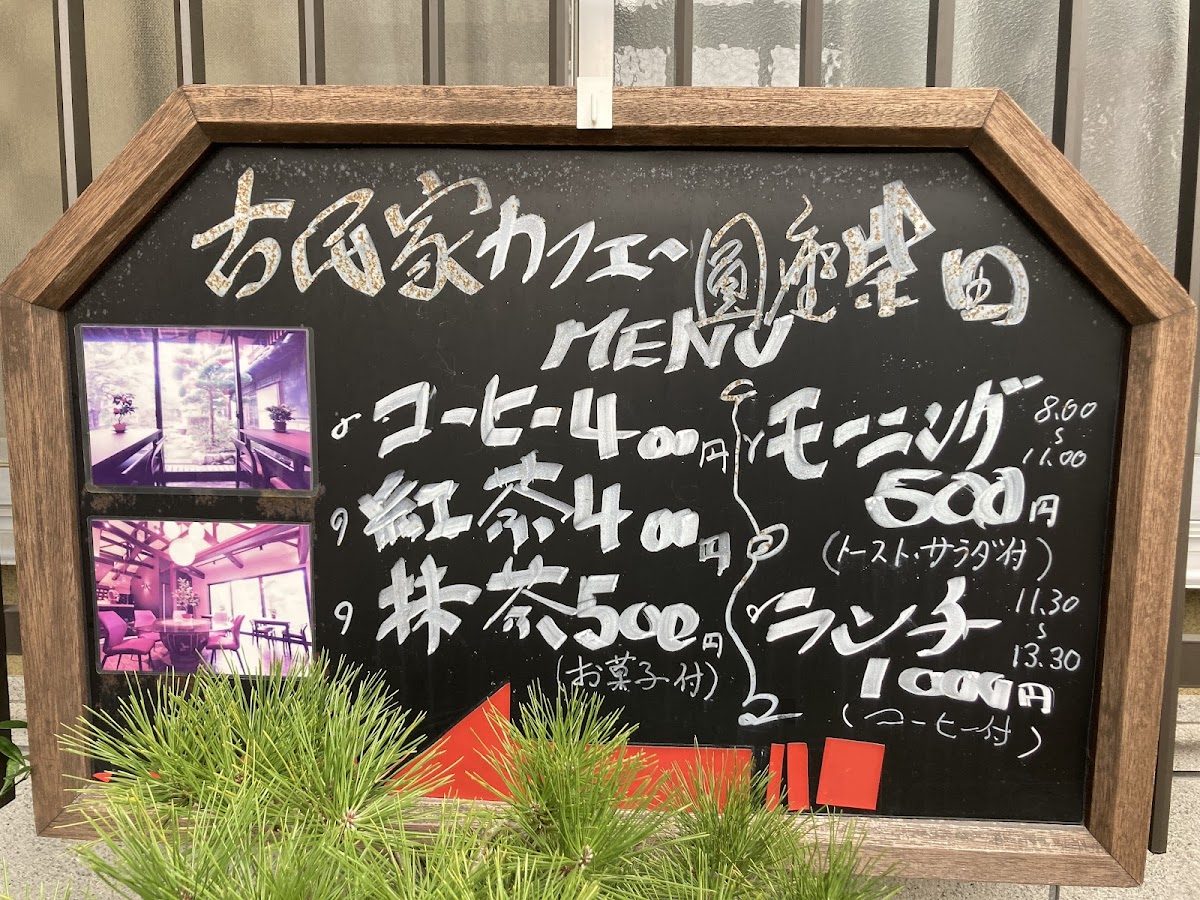 古民家カフェ〜圓座柴田
MENU
コーヒー400円
紅茶400円
抹茶500円
(お菓子付)
モーニング 8.00〜11.00
500円
(トースト・サラダ付)
ランチ 11.30〜13.30
1000円
(コーヒー付)